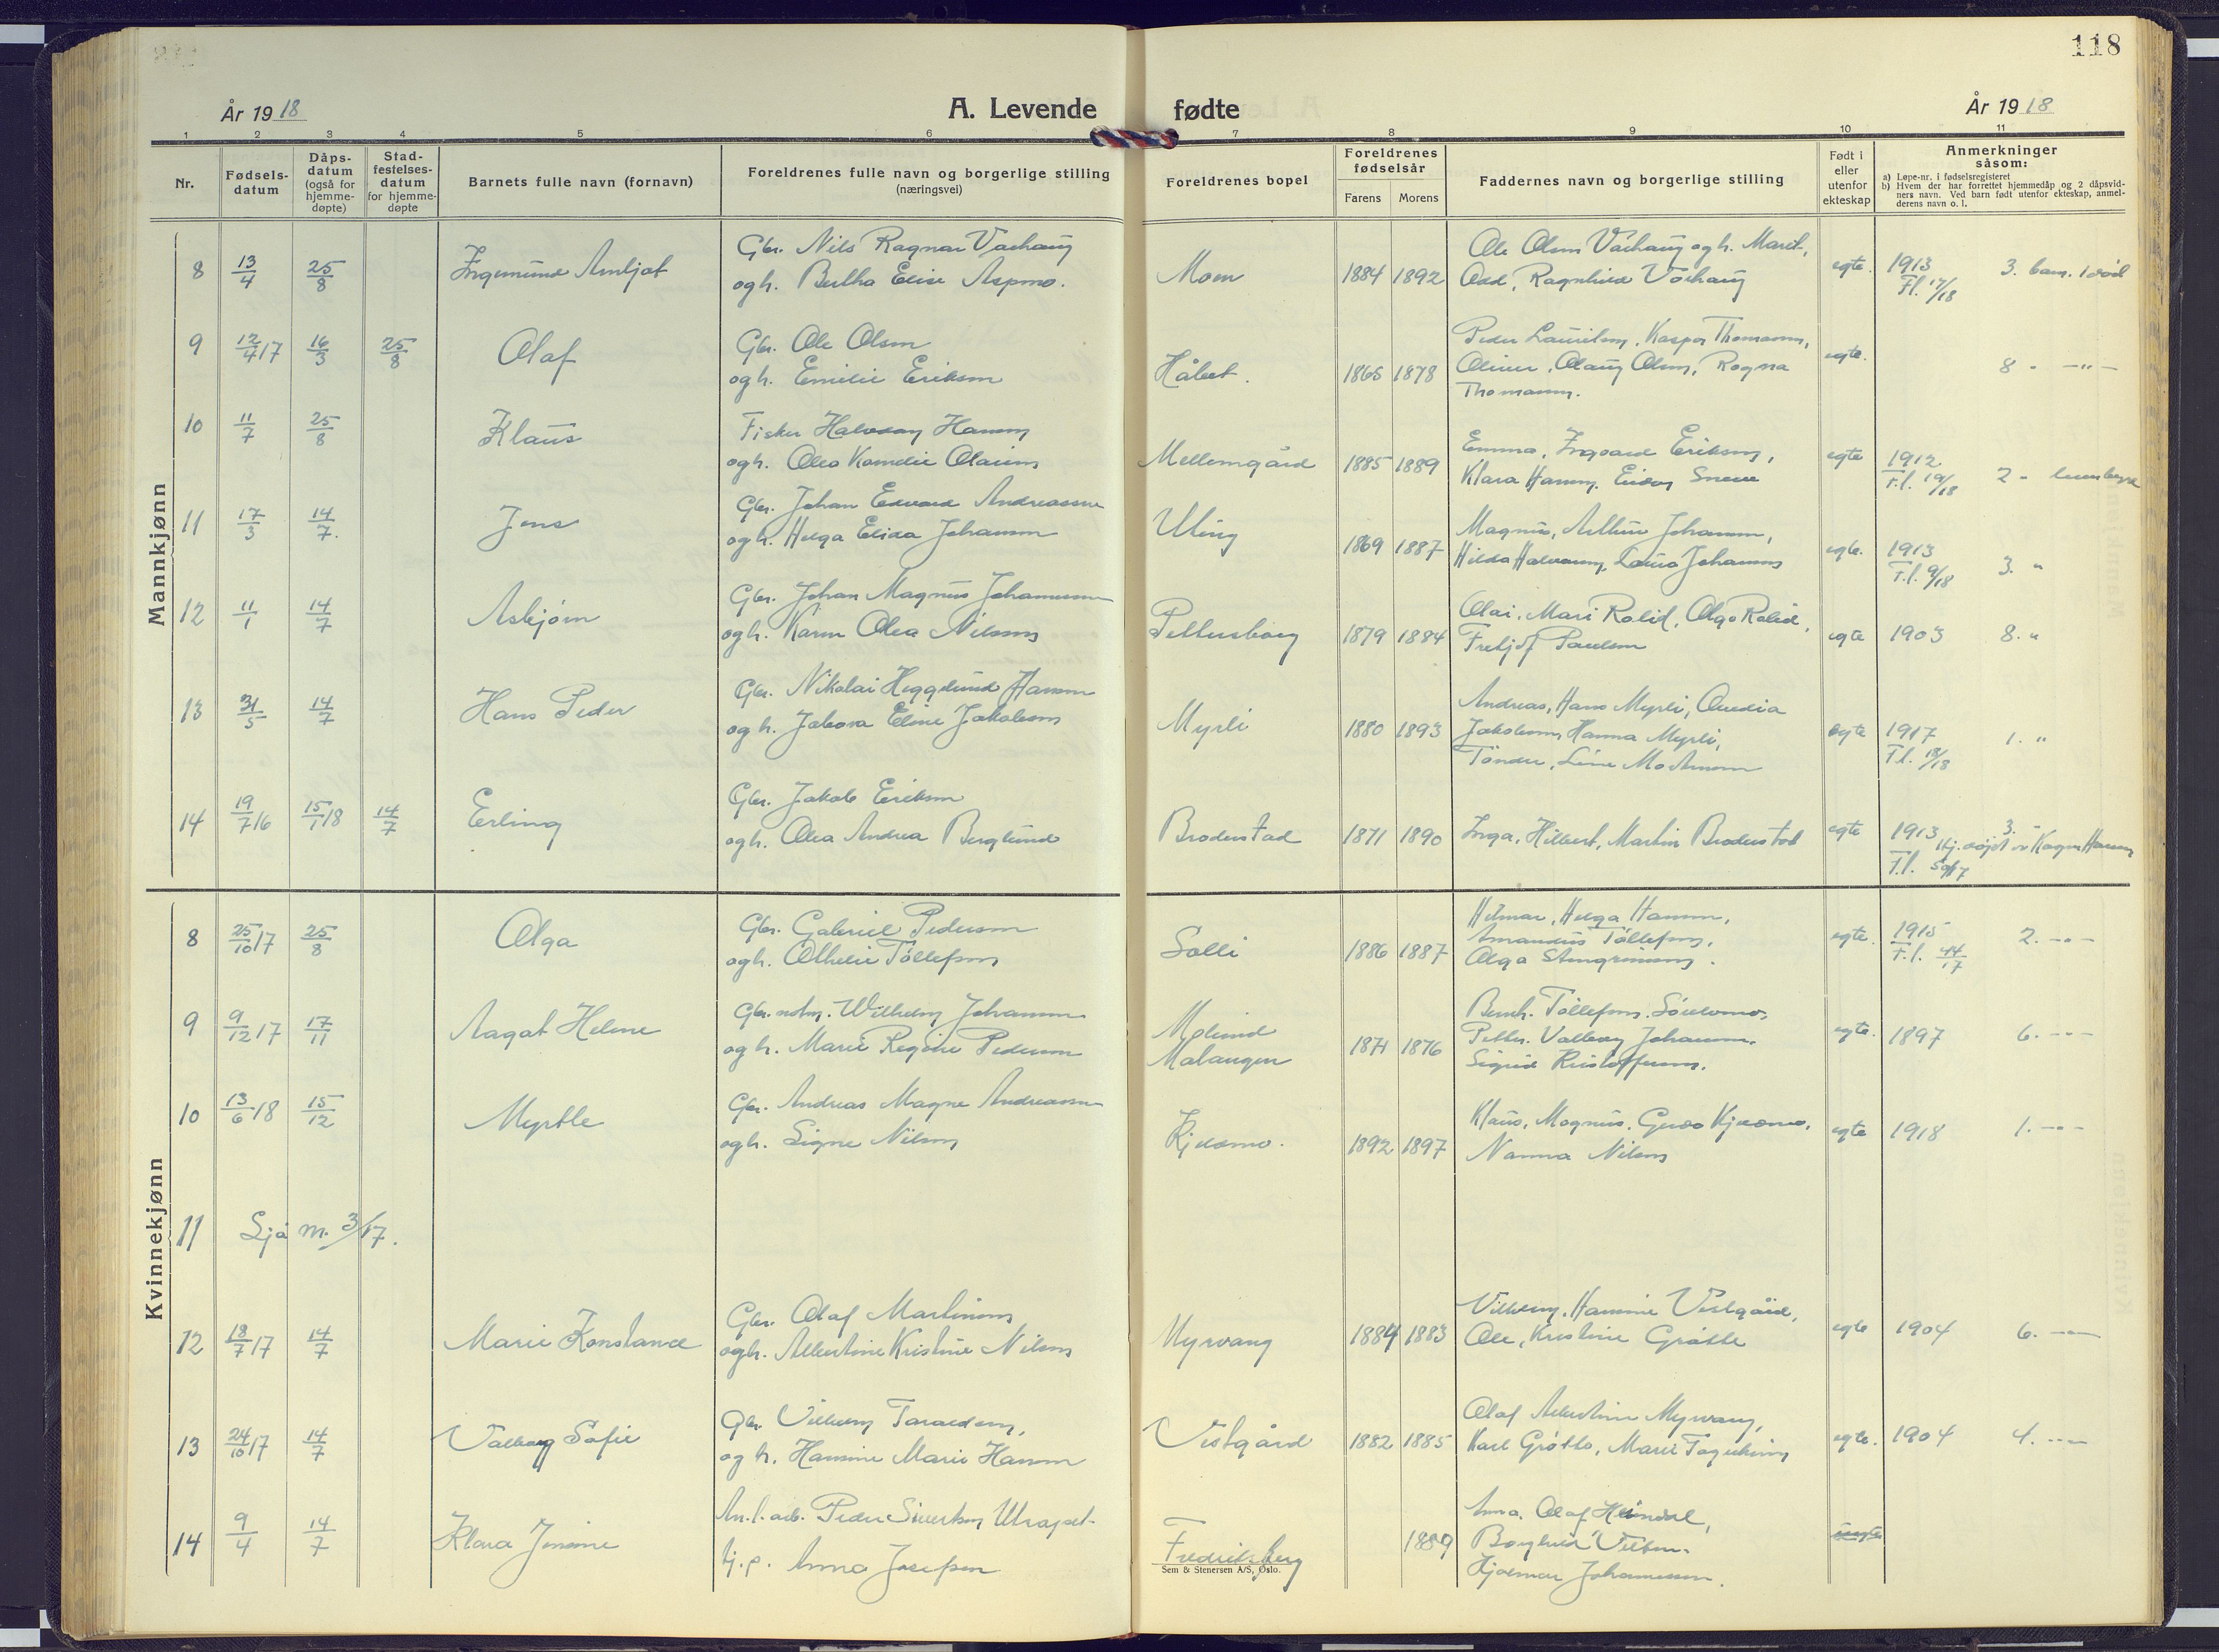 118
År 1918
A. Levende fødte
År 1918
1 2 3 4 5 6 7 8 9 10 11
Nr.
Fødsels-
datum
Dåps-
datum
(også for
hjemme-
døpte)
Stad-
festelses-
datum
for hjemme-
døpte
Barnets fulle navn (fornavn)
Foreldrenes fulle navn og borgerlige stilling
(næringsvei)
Foreldrenes bopel
Foreldrenes
fødselsår
Farens Morens
Faddernes navn og borgerlige stilling
Født i
eller
utenfor
ekteskap
Anmerkninger
såsom:
a) Løpe-nr. i fødselsregisteret
b) Hvem der har forrettet hjemmedåp og 2 dåpsvid-
ners navn. Ved barn født utenfor ekteskap, anmel-
derens navn o. l.
Mannkjønn
8 13/4 25/8 Ingemund Arnljot
Gbr. Nils Ragnar Vårhaug
og h. Bertha Elise Aspmo.
Moen 1884 1892
Ole Olsen Vårhaug og h. Marit,
Odd, Ragnhild Vårhaug
egte. 1913 3. barn. 1 død
Fl. 17/18
9 12/4 17 16/3 25/8 Olaf
Gbr. Ole Olsen
og h. Emilie Eriksen
Håbet. 1865 1878
Peder Lauritsen, Kaspar Thomassen,
Oliver, Olaug Olsen, Ragna
Thomassen.
egte. 8 - -"-
10 11/7 25/8 Klaus
Fisker Halvdan Hansen
og h. Olea Kornelie Olaisen
Mellemgård 1885 1889
Emma, Ingvard Eriksen,
Klara Hansen,
egte 1912 2 -
F.l. 19/18
11 17/3 14/7. Jens
Gbr. Johan Edvard Andreassen
og h. Helga Elida Johansen
Uteng 1869 1887
Magnus, Arthur Johansen,
Hilda Halvorsen, Laura Johansen
egte. 1913 3. "
F.l. 9/18
12 11/1 14/7 Asbjørn
Gbr. Johan Magnus Johannessen
og h. Karen Olea Nilsen
Pettersborg 1879 1884
Olai, Mari Rolid, Olga Rolid,
Fretjof Paulsen
egte 1903 8. "
13 31/5 14/7 Hans Peder
Gbr. Nikolai Hegglund Hansen
og h. Jakova Eline Jakobsen
Myrli 1880 1893
Andreas, Hans Myrli,
Jakobsen, Hanna Myrli,
Tønder, Line Mortensen
egte 1917 1. "
F.l. 18/18
14 19/7 16 15/1 18 14/7 Erling
Gbr. Jakob Eriksen
og h. Olea Andrea Berglund
Broderstad 1871 1890
Inga, Hilbert, Martin Broderstad
egte 1913 3. -
Hj. døpt v/ Hansen
F.l. 50/17
Kvinnekjønn
8 25/10 17 25/8 Olga
Gbr. Gabriel Pedersen
og h. Othelie Tollefsen
Solli 1886 1887
Hilmar, Helga Hansen,
Amandus Tollefsen,
Olga Steingrimsen.
egte. 1915 2. -"-
F.l. 44/17
9 9/12 17 17/11 Aagot Helene
Gbr. Wilhelm Johansen
og h. Marie Regine Pedersen
Molund
Malangen 1871 1876
Bernh. Tollefsen,
Petter, Valborg Johansen,
Sigrid Kristoffersen.
egte. 1897 6. -"-
10 13/6 18 15/12 Myrtle
Gbr. Andreas Magne Andreassen
og h. Signe Nilsen
Kjosmo. 1892 1897
Klaus, Magnus, Kjosmo,
Nanna Nilsen
egte 1918 1. -"-
11 Sjå m. 3/17.
12 18/7 17 14/7 Marie Konstance
Gbr. Olaf Martinsen
og h. Albertine Kristine Nilsen
Myrvang 1884 1883
Vilhelm, Hansine Vestgård,
Ole, Kristine Grøtte
egte 1904 6. -"-
13 24/10 17 14/7 Valborg Sofie
Gbr. Vilhelm Taraldsen,
og h. Hansine Marie Hansen
Vestgård 1882 1885
Olaf Albertine Myrvang,
Karl Grøtte, Marie
egte. 1904 4. -"-
14 9/4 14/7 Klara Jensine
An.l. arb. Peder Sivertsen
tj.p. Anna Josefsen
Fredriksberg 1889
Anna, Olaf Heimdal,
Borghild
Hjalmar Johannessen.
Sem & Stenersen A/S, Oslo.